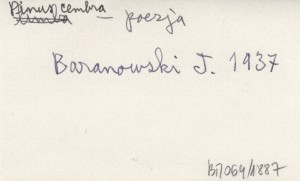 Pinus cembra
limba — poezja
Baranowski J. 1937
BП064/1887